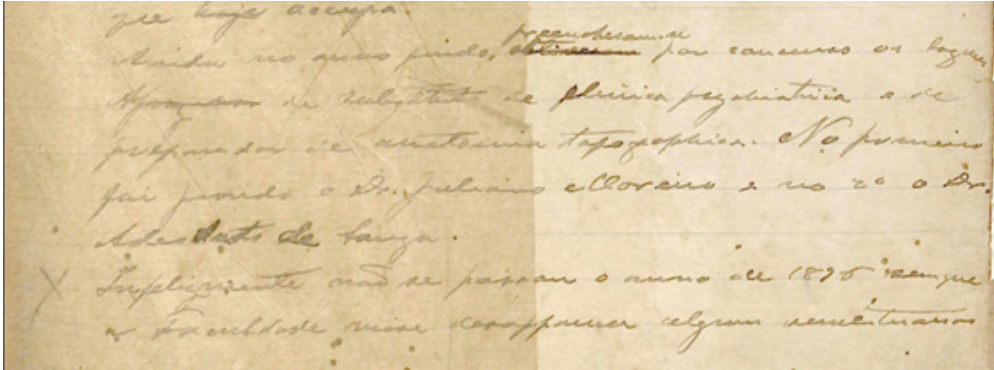 que hoje occupa.
Ainda no anno findo, preencheram-se por concurso os lugares
de substituto de clinica psychiatrica e de
preparador de anatomia topographica. No primeiro
foi provido o Dr. Juliano Moreira e no 2º o Dr.
Adeodato de Souza.
X Infelizmente não se passou o anno de 1896 sem que
a Faculdade visse desapparecer alguns